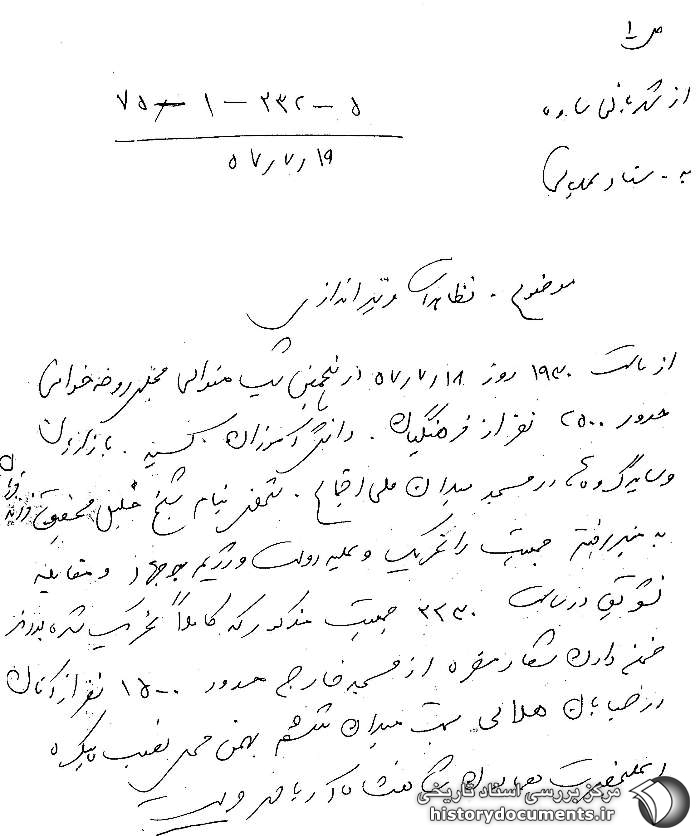 ص ۱
از شهربانی ساوه
۵ - ۲۳۲ - ۱ - ۷۵
به - ستاد عملیاتی
۱۹ر۷ر۵۷
موضوع - تظاهرات و تیراندازی
از ساعت ۱۹۳۰ روز ۱۸ر۷ر۵۷ در پنجمین شب متوالی مجلس روضه خوانی
حدود ۲۵۰۰ نفر از فرهنگیان - دانش آموزان - کسبه - بازاریان
و سایر گروهها در مسجد میدان ملی اجتماع - شخصی بنام شیخ خلیل محقق
به منبر رفته جمعیت را تحریک و علیه دولت و رژیم موجود و مقابله
تشویق در ساعت ۲۲۳۰ جمعیت مذکور که کاملاً تحریک شده بودند
ضمن دادن شعار مضره از مسجد خارج حدود ۱۵۰۰ نفر از آنان
در خیابان هلالی سمت میدان ششم بهمن محل نصب پیکره
اعلیحضرت همایون شاهنشاه آریامهر
مرکز بررسی اسناد تاریخی
historydocuments.ir